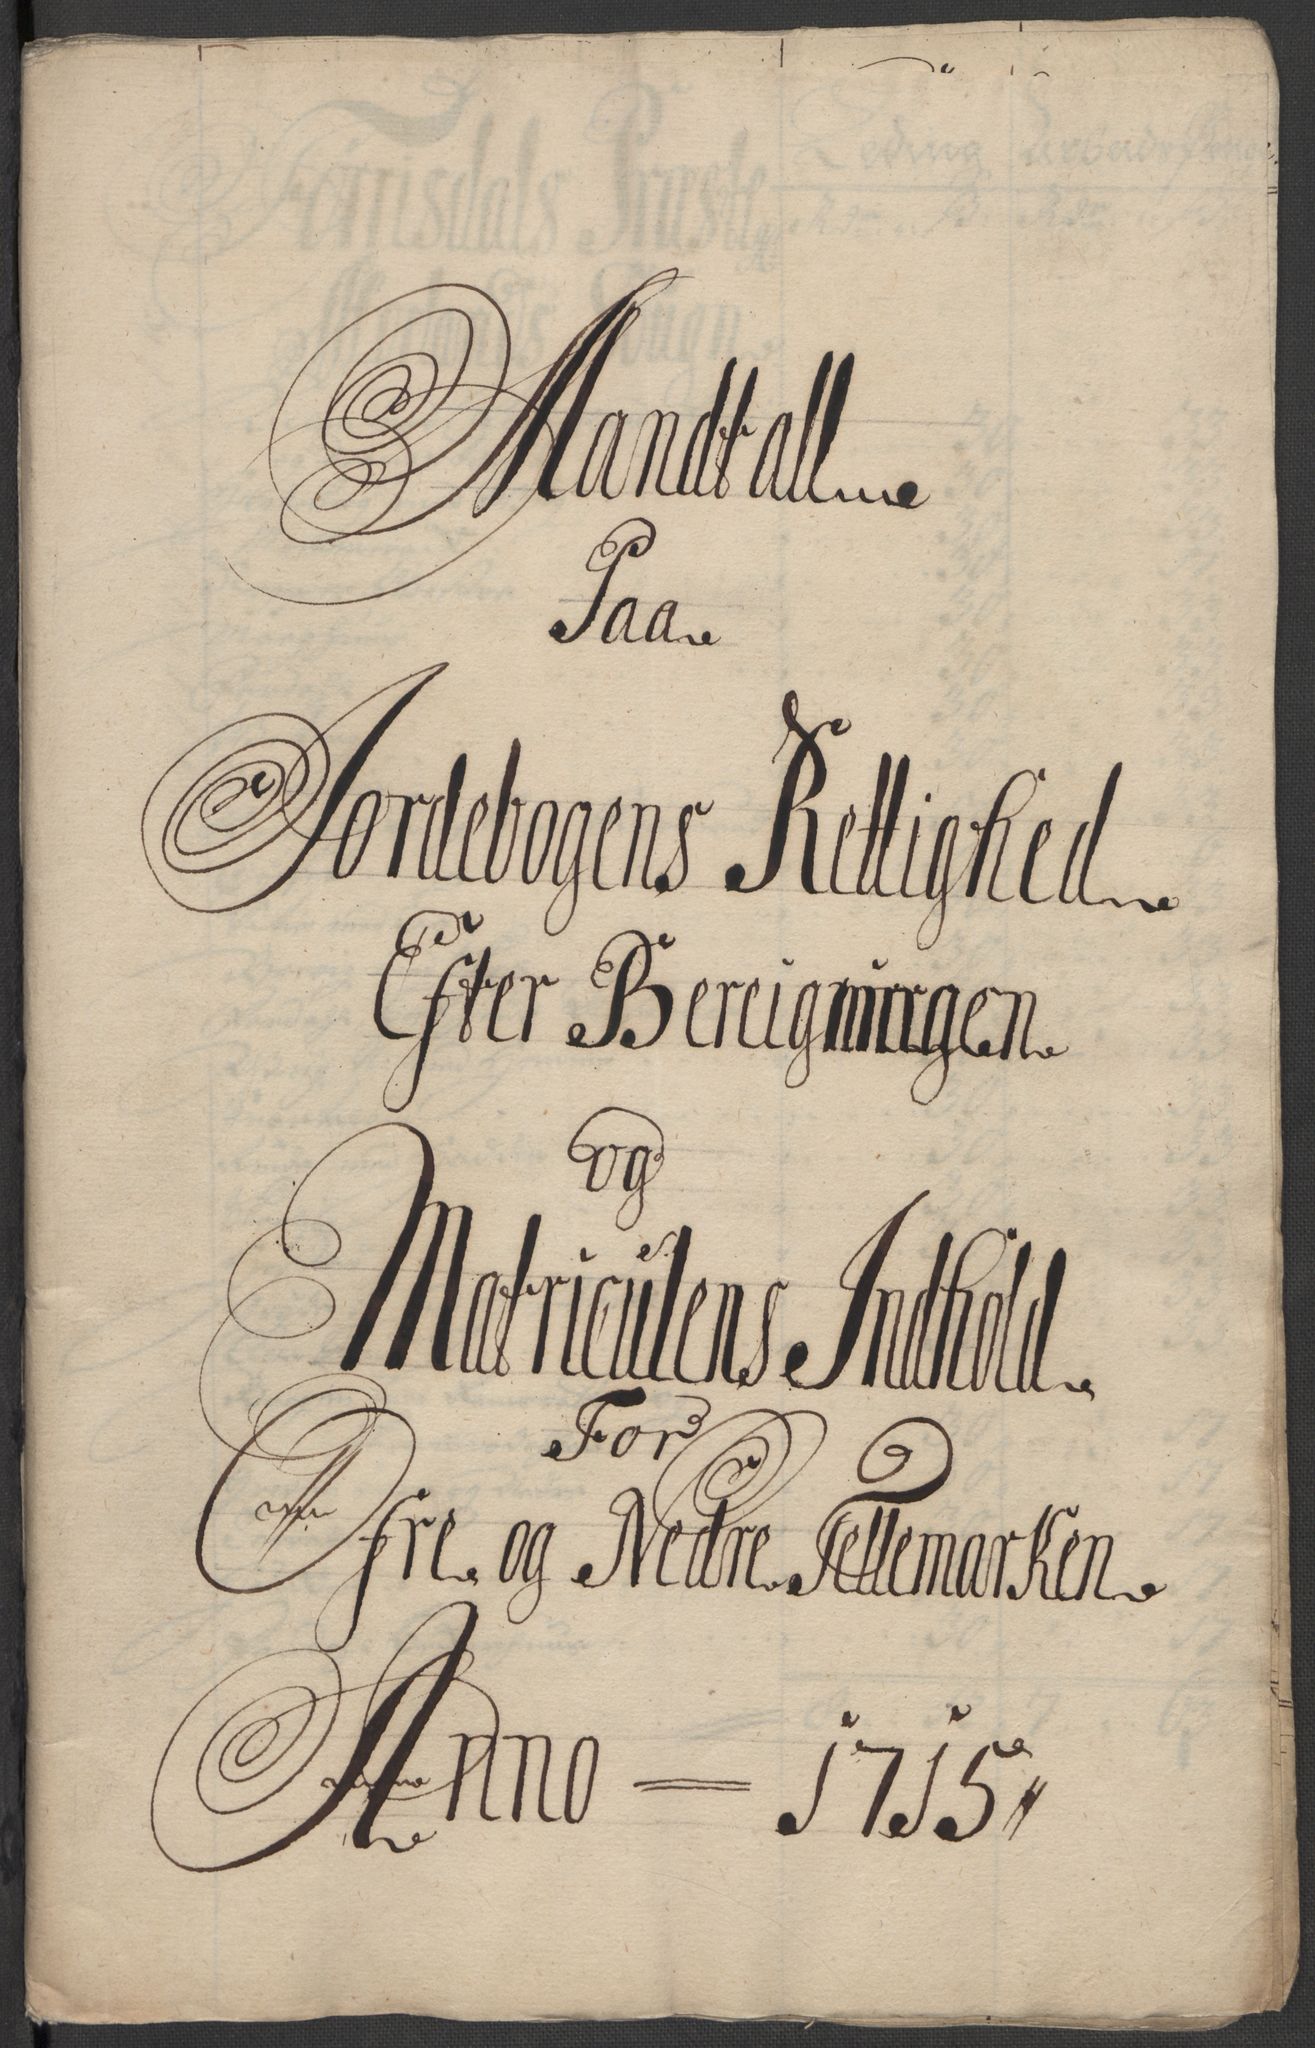 Mandtall
Paa
Jordebogens Rettighed
Efter Bereigningen
og
Matriculens Indhold
For
Øfre og Nedre Tellemarken
Anno 1715